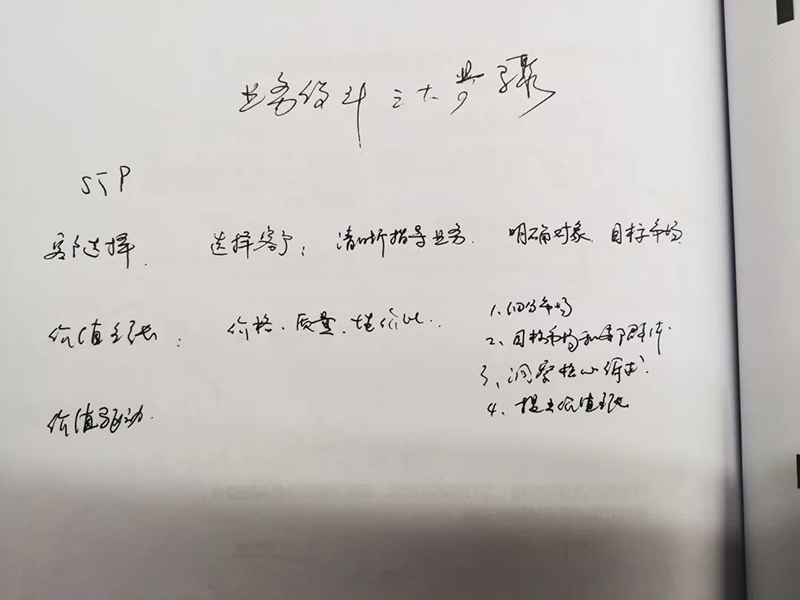 业务设计三大步骤
STP
客户选择. 选择客户; 清晰指导业务. 明确对象、目标市场
价值主张: 价格、质量、性价比.
1、细分市场
2、目标市场和客户群体.
3、洞察核心诉求.
4、提出价值主张
价值驱动.